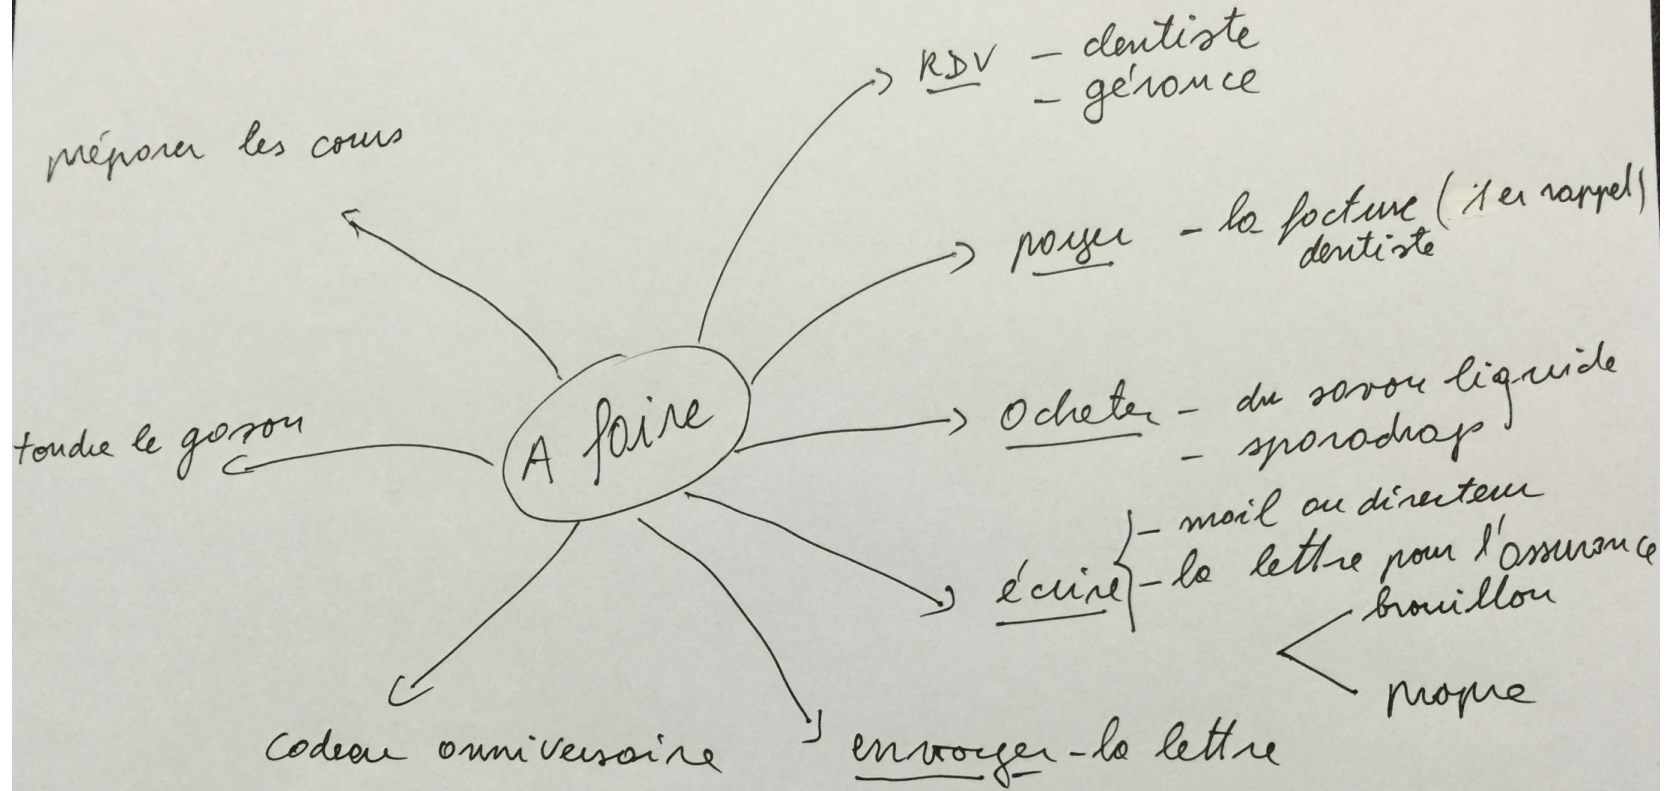 RDV - dentiste
- gérance
préparer les cours
payer - la facture (1er rappel)
dentiste
A faire
acheter - du savon liquide
- sparadrap
tondre le gazon
écrire - mail au directeur
- la lettre pour l'assurance
brouillon
propre
cadeau anniversaire
envoyer - la lettre